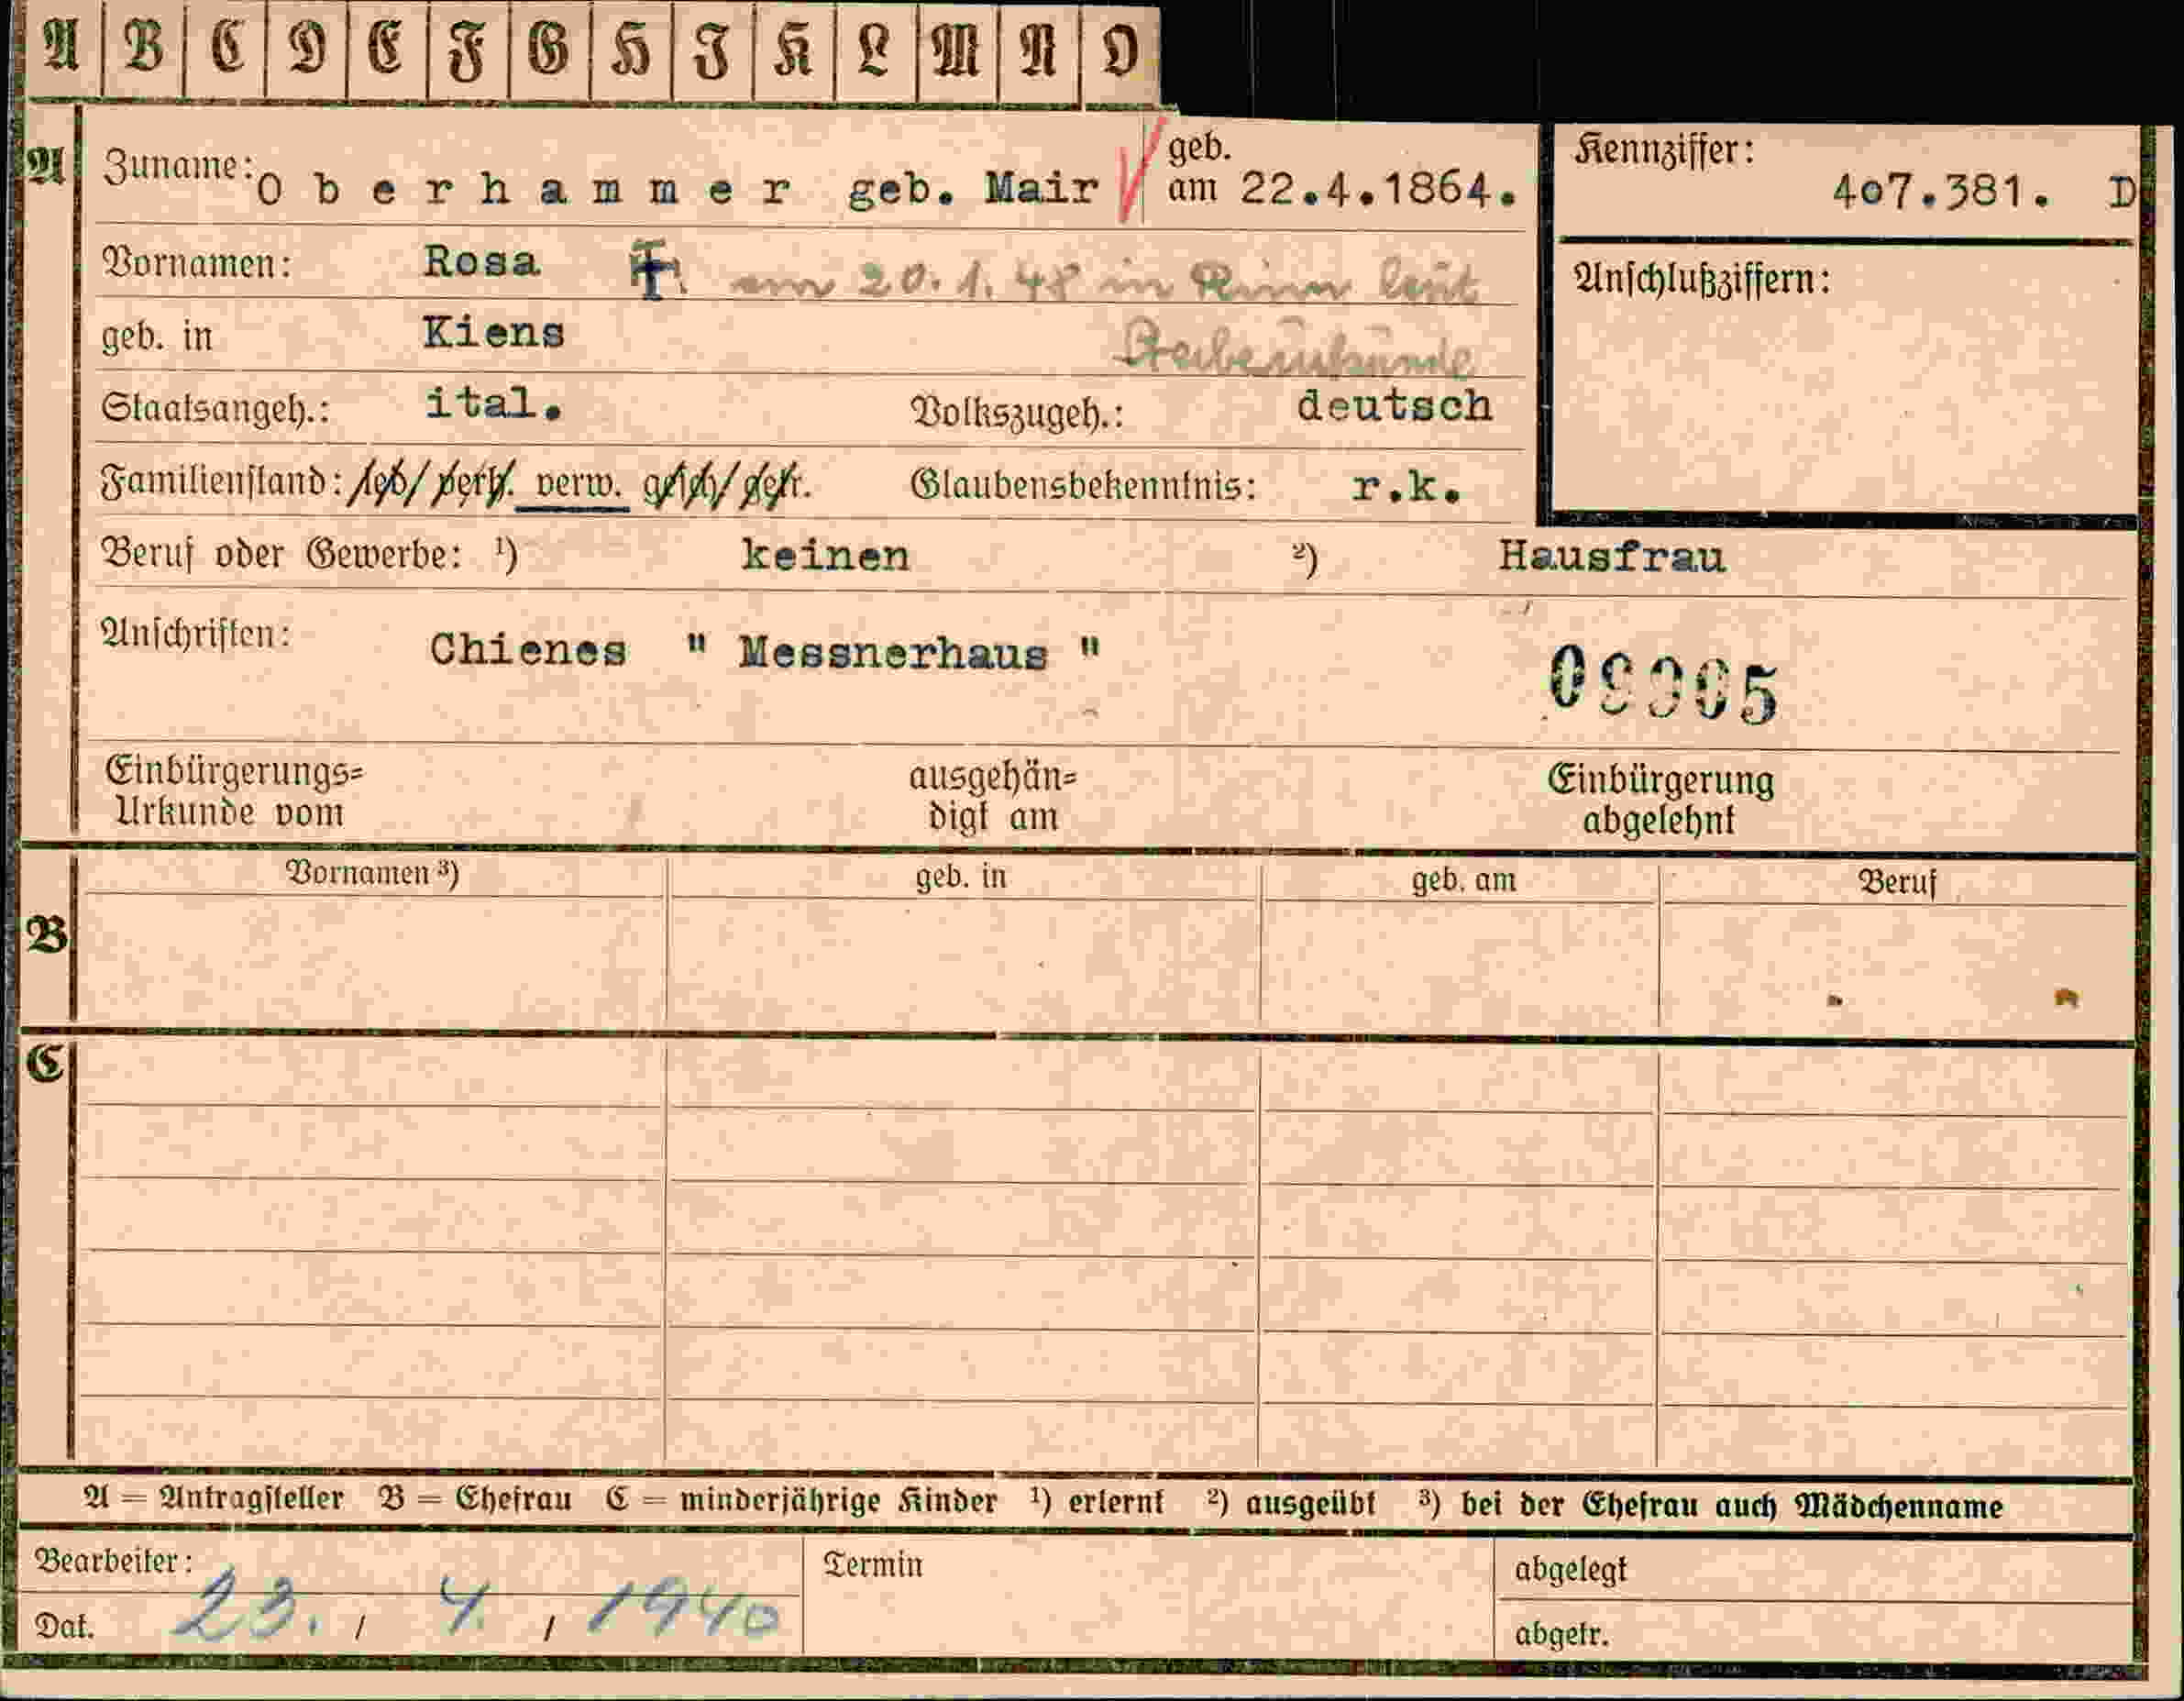 A B C D E F G H I K L M N O
A Zuname: Oberhammer geb. Mair geb. am 22.4.1864. Kennziffer: 407.381. D
Vornamen: Rosa † am 20.1.48 in Rinn laut Anschlußziffern:
geb. in Kiens Sterbeurkunde
Staatsangeh.: ital. Volkszugeh.: deutsch
Familienstand: led. verh. verw. gesch. getr. Glaubensbekenntnis: r.k.
Beruf oder Gewerbe: ¹) keinen ²) Hausfrau
Anschriften: Chienes " Messnerhaus "
Einbürgerungs= ausgehän= Einbürgerung
Urkunde vom digt am abgelehnt
Vornamen ³) geb. in geb. am Beruf
B
C
A = Antragsteller B = Ehefrau C = minderjährige Kinder ¹) erlernt ²) ausgeübt ³) bei der Ehefrau auch Mädchenname
Bearbeiter: Termin abgelegt
Dat. 23. / 4. / 1940 abgetr.